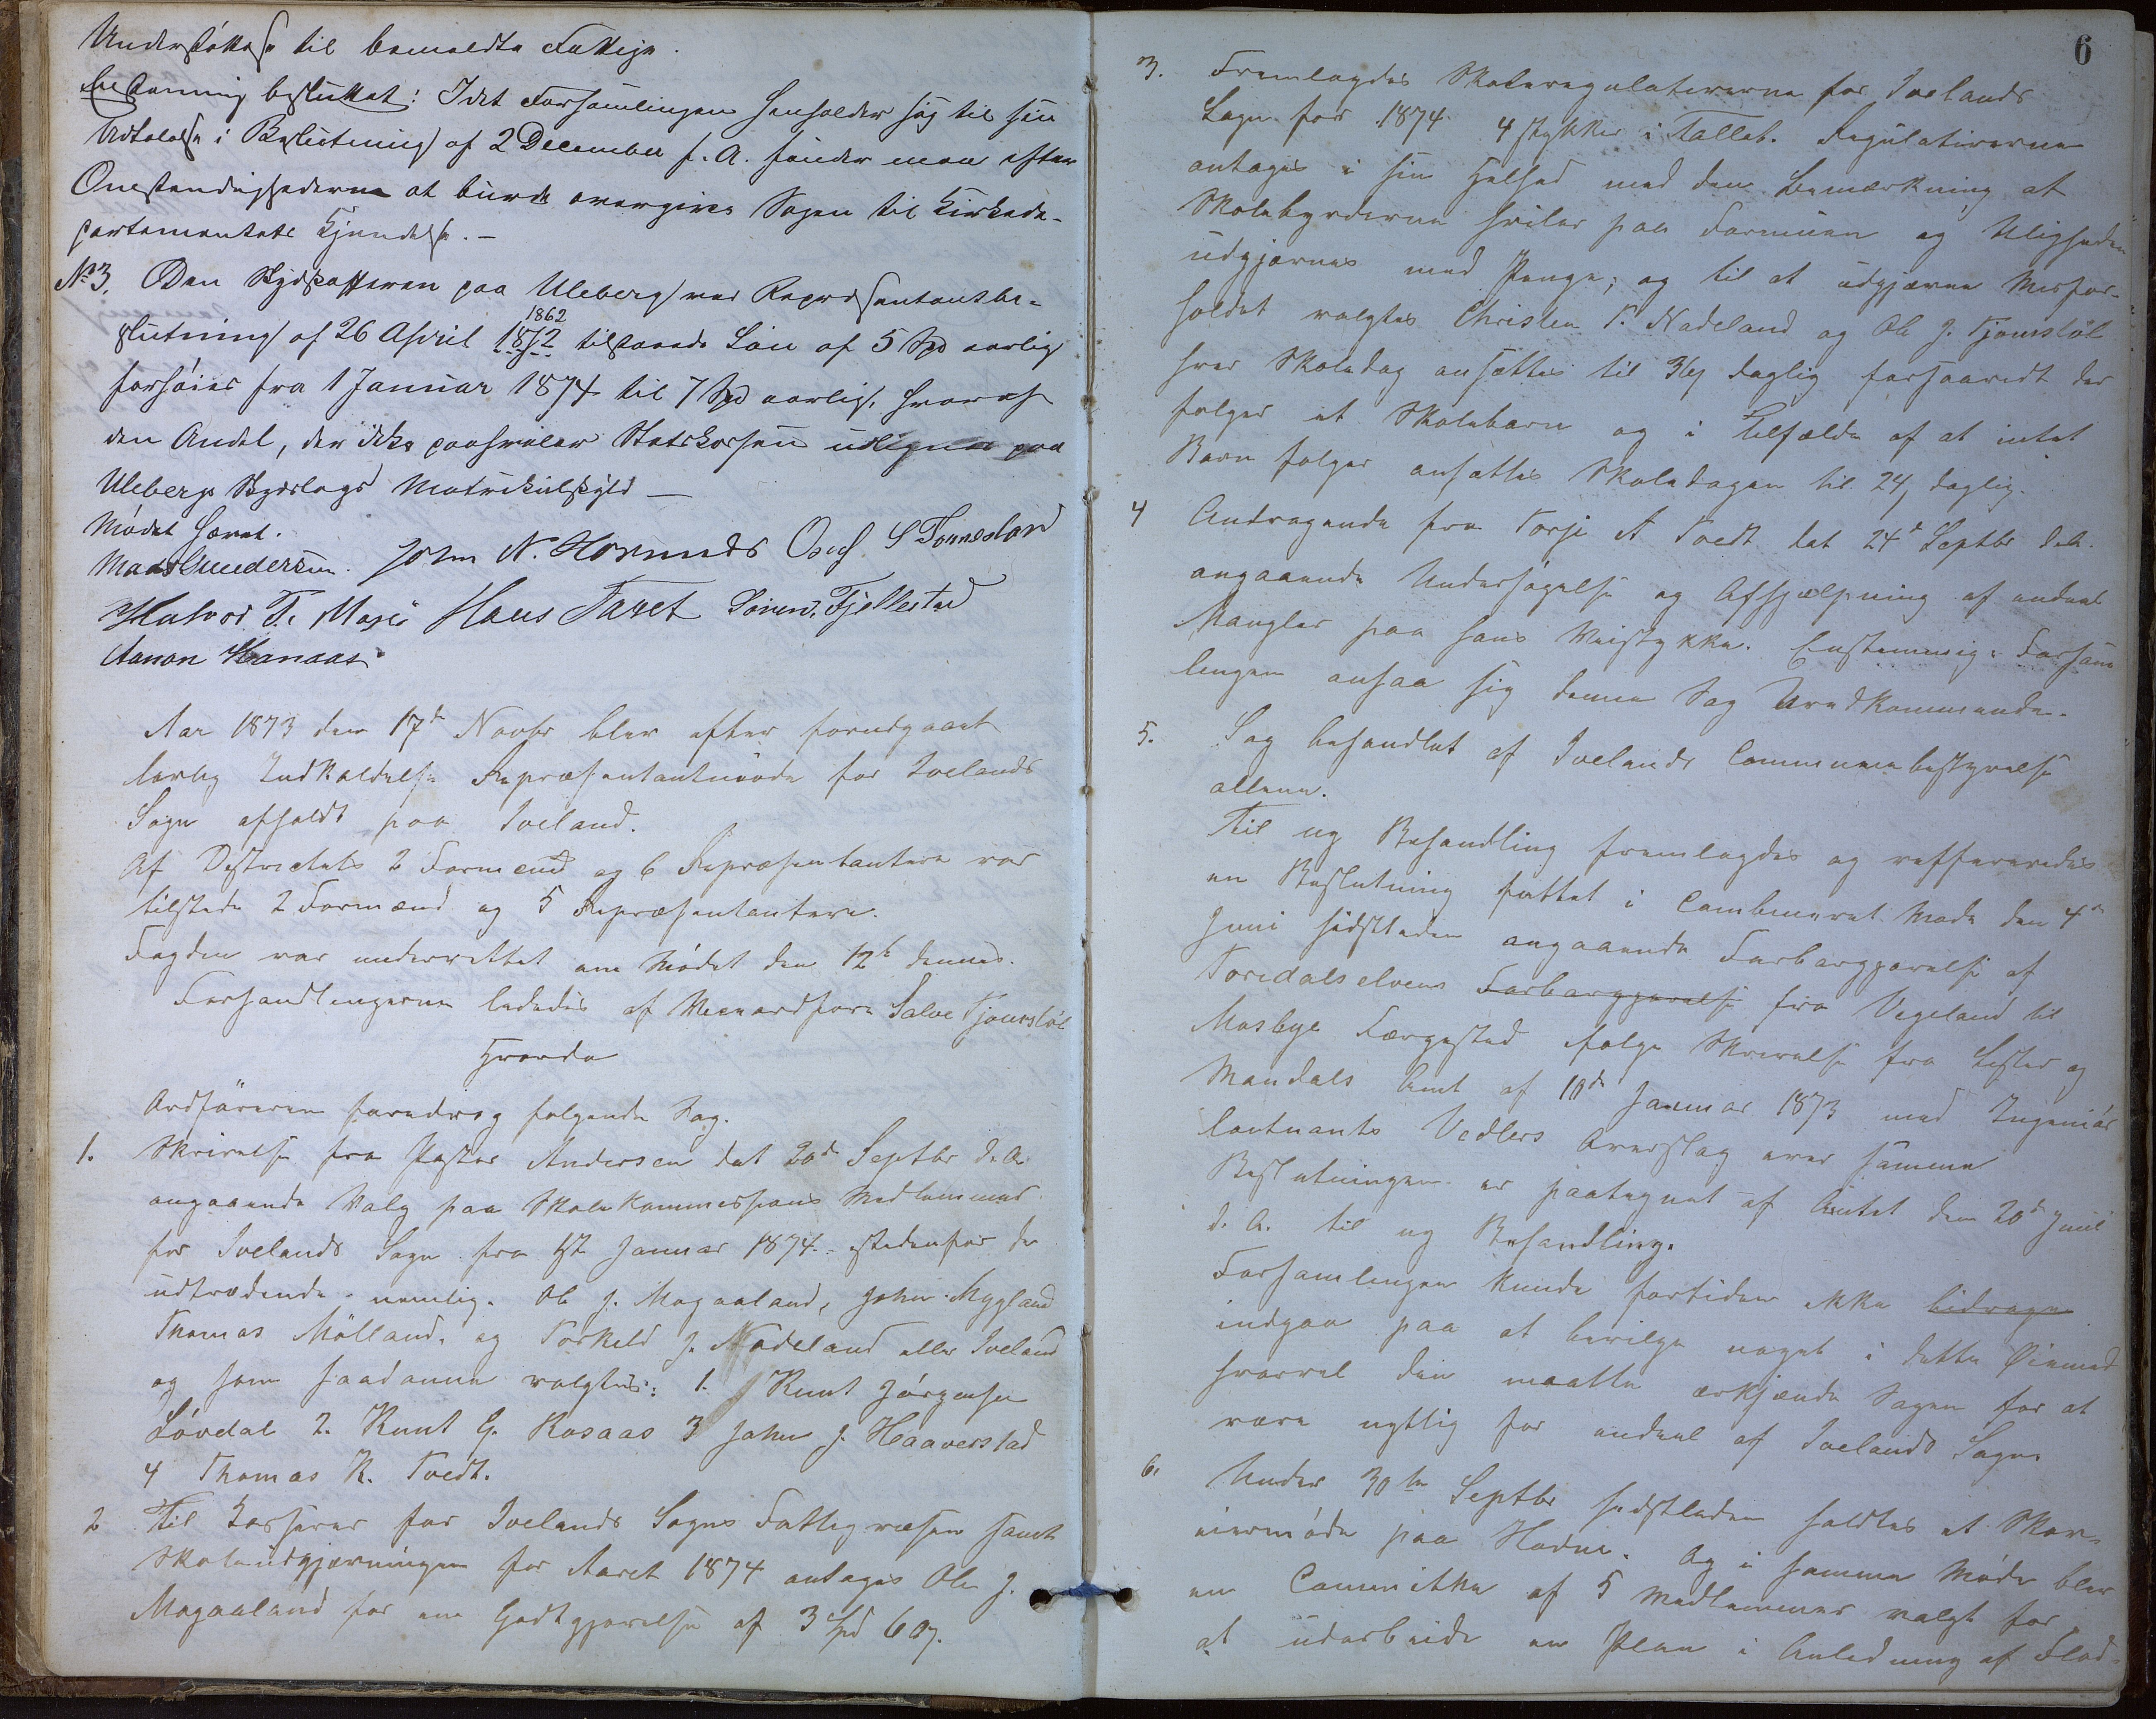 Understøttelse til bemeldte Fattige.
Enstemmig besluttet: Idet Forsamlingen henholder sig til sin
Udtalelse i Beslutning af 2 December f. A. finder man efter
Omstendighederne at burde overgives Sagen til Kirkede-
partementets Kjendelse. -
No 3. Den Skydskafferen paa Uleberg ved Repræsentantbe-
1862
slutning af 26 April 1872 tilstaaede Løn af 5 Spd aarlig
forhøies fra 1 Januar 1874 til 7 Spd aarlig, hvoraf
den Andel, der ikke paahviler Statskassen udlignes paa
Ulebergs Skydslags Matrikulskyld —
Mødet hævet.
Mads Gundersen. John N. Hornnes Osuf S Tonnesland
Halvor T. Mosei Hans Tavet Sören, Fjellestad
Aanon Hanaas
Aar 1873 den 17de Novbr blev efter forudgaaet
lovlig Indkaldelse Repræsentantmøde for Ivelands
Sogn afholdt paa Iveland.
Af Districtets 2 Formænd og 6 Repræsentantere var
tilstede 2 Formænd og 5 Repræsentantere.
Fogden var underrettet om Mødet den 12te dennes.
Forhandlingerne lededes af Viceordfører Salve Tjomsløl
Hvorda
Ordføreren foredrog følgende Sag.
1. Skrivelse fra Pastor Andersen dat 20de Septbr d. A.
angaaende Valg paa Skolekommissions Medlemmer
for Ivelands Sogn fra 1ste Januar 1874 - istedenfor de
udtrædende - nemlig. Ole J. Mogaaland, John Mygland
Thomas Mölland, og Torkeld J. Nodeland eller Iveland
og som saadanne valgtes: 1. Knut Jörgensen
Lövdal 2. Knut G. Rosaas 3 John J. Haaverstad
4 Thomas K. Tvedt.
2 Til Kasserer for Ivelands Sogns Fattigvæsen samt
Skoleudgjævningen for Aaret 1874 antages Ole J.
Mogaaland for en Godtgjørelse af 3 Spd 60 s.
6
3. Fremlagdes Skoleregulativerne for Ivelands
Sogn for 1874 4 stykker i Tallet. Regulativerne
antages i sin Helhed med den Bemærkning at
Skolebyrderne hviler paa Formuen og Uligheden
udgjævnes med Penge; og til at udgjævne Misfor-
holdet valgtes Christen T. Nodeland og Ole J. Tjomsløl
hver Skoledag ansættes til 36 s daglig forsaavidt der
følger et Skolebarn og i Tilfælde af at intet
Barn følger ansættes Skoledagen til 24 s daglig.
4 Andragende fra Torje A Tvedt dat 24de Septbr d. A.
angaaende Undersøgelse og Afhjælpning af endeel
Mangler paa hans Veistykke. Enstemmig: Forsam
lingen ansaa sig denne Sag Uvedkommende.
5. Sag behandlet af Ivelands Communebestyrelse
allene.
Til ny Behandling fremlagdes og reffereredes
en Beslutning fattet i Combineret Møde den 4de
Juni sidstleden angaaende Farbargjørelse af
Toredalselven Farbargjørelse fra Vegeland til
Mosbye Færgested ifølge Skrivelse fra Lister og
Mandals Amt af 10de Januar 1873 med Ingeniør
lautnants Vedlers Overslag over samme
Beslutningen er paategnet af Amtet den 20de Juni
d. A. til ny Behandling.
Forsamlingen kunde fortiden ikke bidrage
indgaa paa at bevilge noget i dette Øiemed
hvorvel den maatte erkjænde Sagen for at
være nyttig for endeel af Ivelands Sogn.
6. Under 30te Septbr sidstleden holdtes et Skov-
eiermøde paa Hodne. Og i samme Møde blev
en Committee af 5 Medlemmer valgt for
at udarbeide en Plan i Anledning af Flød-